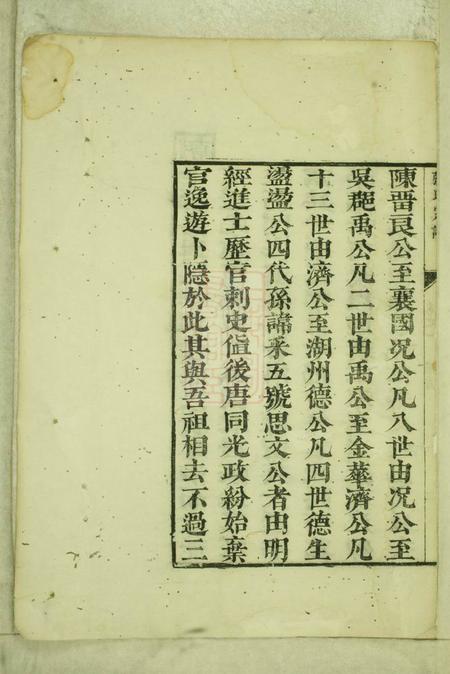 陳晉良公至襄國况公凡八世由况公至
吳郡禹公凡二世由禹公至金華濟公凡
十三世由濟公至湖州德公凡四世德生
盪盪公四代孫諱釆五號思文公者由明
經進士歷官刺史值後唐同光政紛始棄
官逸遊卜隱於此其與吾祖相去不過三